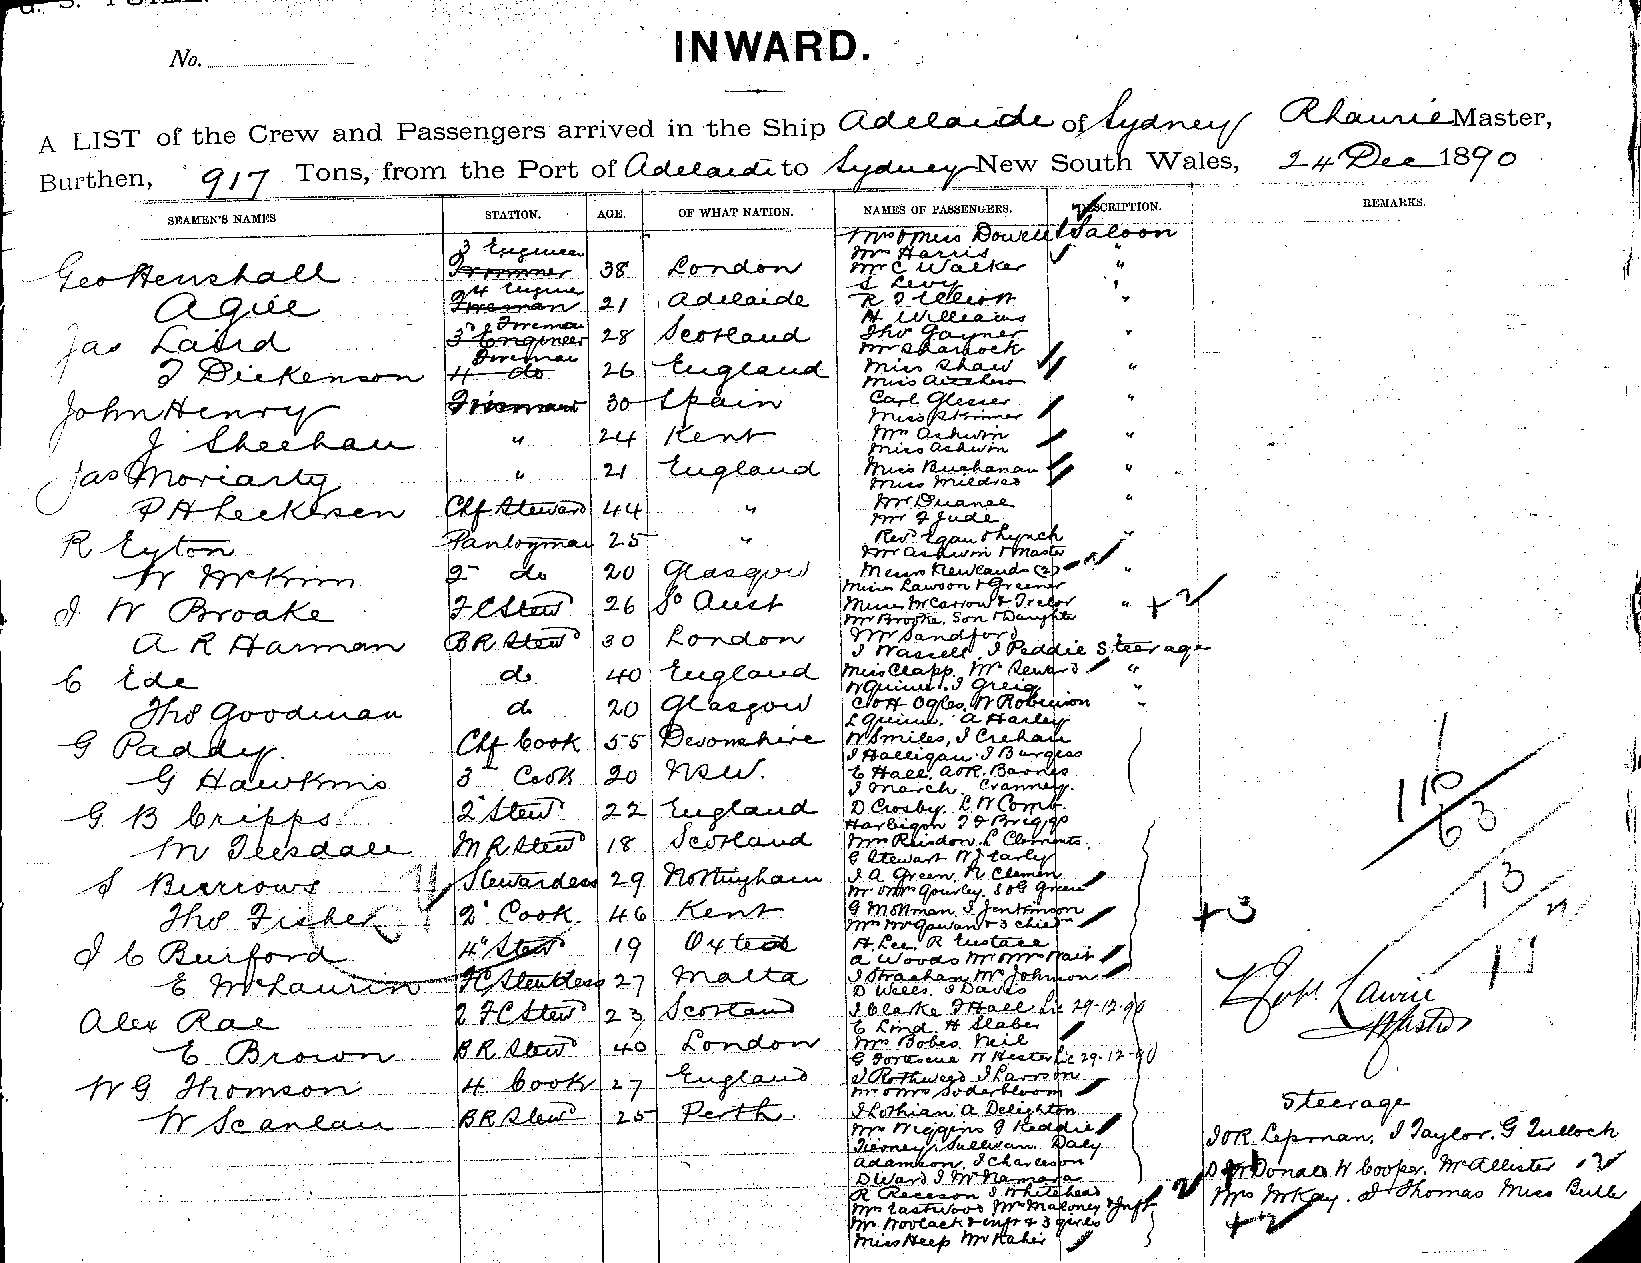 No.
INWARD.
A LIST of the Crew and Passengers arrived in the Ship Adelaide of Sydney R Laurie Master,
Burthen, 917 Tons, from the Port of Adelaide to Sydney New South Wales, 24 Dec 1890
SEAMEN'S NAMES STATION. AGE. OF WHAT NATION. NAMES OF PASSENGERS. DESCRIPTION. REMARKS.
Geo Henshall 3 Engineer Trimmer 38 London
A Gill 4 Engineer Fireman 21 Adelaide
Jas Laird Fireman 3 Engineer 28 Scotland
J Dickenson Fireman 4 do 26 England
John Henry Fireman 30 Spain
J Sheehan " 24 Kent
Jas Moriarty " 21 England
P H Leckesen Chf Steward 44 "
R Eyton Pantryman 25 "
W McKim 2 do 20 Glasgow
J W Broake F C Stewd 26 So Aust
A R Harman B R Stewd 30 London
C Ede do 40 England
Thos Goodman do 20 Glasgow
G Paddy Chf Cook 55 Devonshire
G Hawkins 3 Cook 20 NSW.
G B Cripps 2 Stewd 22 England
M Teesdale M R Stewd 18 Scotland
S Burrows Stewardess 29 Nottingham
Thos Fisher 2 Cook 46 Kent
J C Burford 4 Stewd 19 Oxted
E McLaurin F C Stewdess 27 Malta
Alex Rae 2 F C Stewd 23 Scotland
E Brown B R Stewd 40 London
W G Thomson 4 Cook 27 England
W Scanlan B R Stewd 25 Perth.
Saloon
Mrs Harris
Mr C Walker "
S Levy "
R J Elliott "
H Williams
Thos Gayner "
Mr Sharlock
Miss Shaw "
Miss Aitcheson
Carl Gleser "
Miss Skinner
Mrs Ashwin "
Miss Ashwin
Miss Buchanan "
Miss Mildred
Mr Duance "
Mr F Jude
Revd Egan & Lynch "
Mr Ashwin & Master
Messrs Newlands (2) "
Misses Lawson & Greener
Misses McCarrow & Trelor "
Mr Brooke, Son & Daughter
Mr Sandford
J Wassell, J Peddie Steerage
Miss Clapp, Mr Seward "
W Quinn. J Greig "
C & H Ogles, W Robinson "
L Quinn, A Harley
W Smiles, J Crehan
J Halligan. J Burgess
E Hall. A & R. Barnes
J March, Cranney.
D Crosby. L W Comb.
Harbigon J F Briggs
Mrs Raisdon. L Clements.
G Stewart W J Earley
J A Green, R Clemen
Mr & Mrs Gourley, S & G Green
G Mollman. J Jenkinson
Mrs McGowan & 3 child
H Lee, R Eustace
A Woods Mr & Mrs Nait
J Strachan, Mr Johnson
D Wells. J Davis
J Clarke F Hall 29-12-90
E Lind. H Slaber
Mrs Bobes Neil
G Fortescue W Hester 29-12-90
J Rothwell J Larrson
Mr & Mrs Soderbloom
J Lothian A Delighton
Mrs Wiggins J Keddie
Tierney, Sullivan. Daly
Adamson, J Charleson
D Ward J McNamara
R Receson J Whitehead
Mrs Eastwood Mrs Maloney & Inft
Mr. Woolack & inft & 3 girls
Miss Heep Mr Kahir
110
63
13
+3
11
Robt Laurie
Master
Steerage
J & R. Lepman, J Taylor. G Tulloch
D McDonald W Cooper. McAllister
Mrs McKay. J Thomas Miss Butler
+2